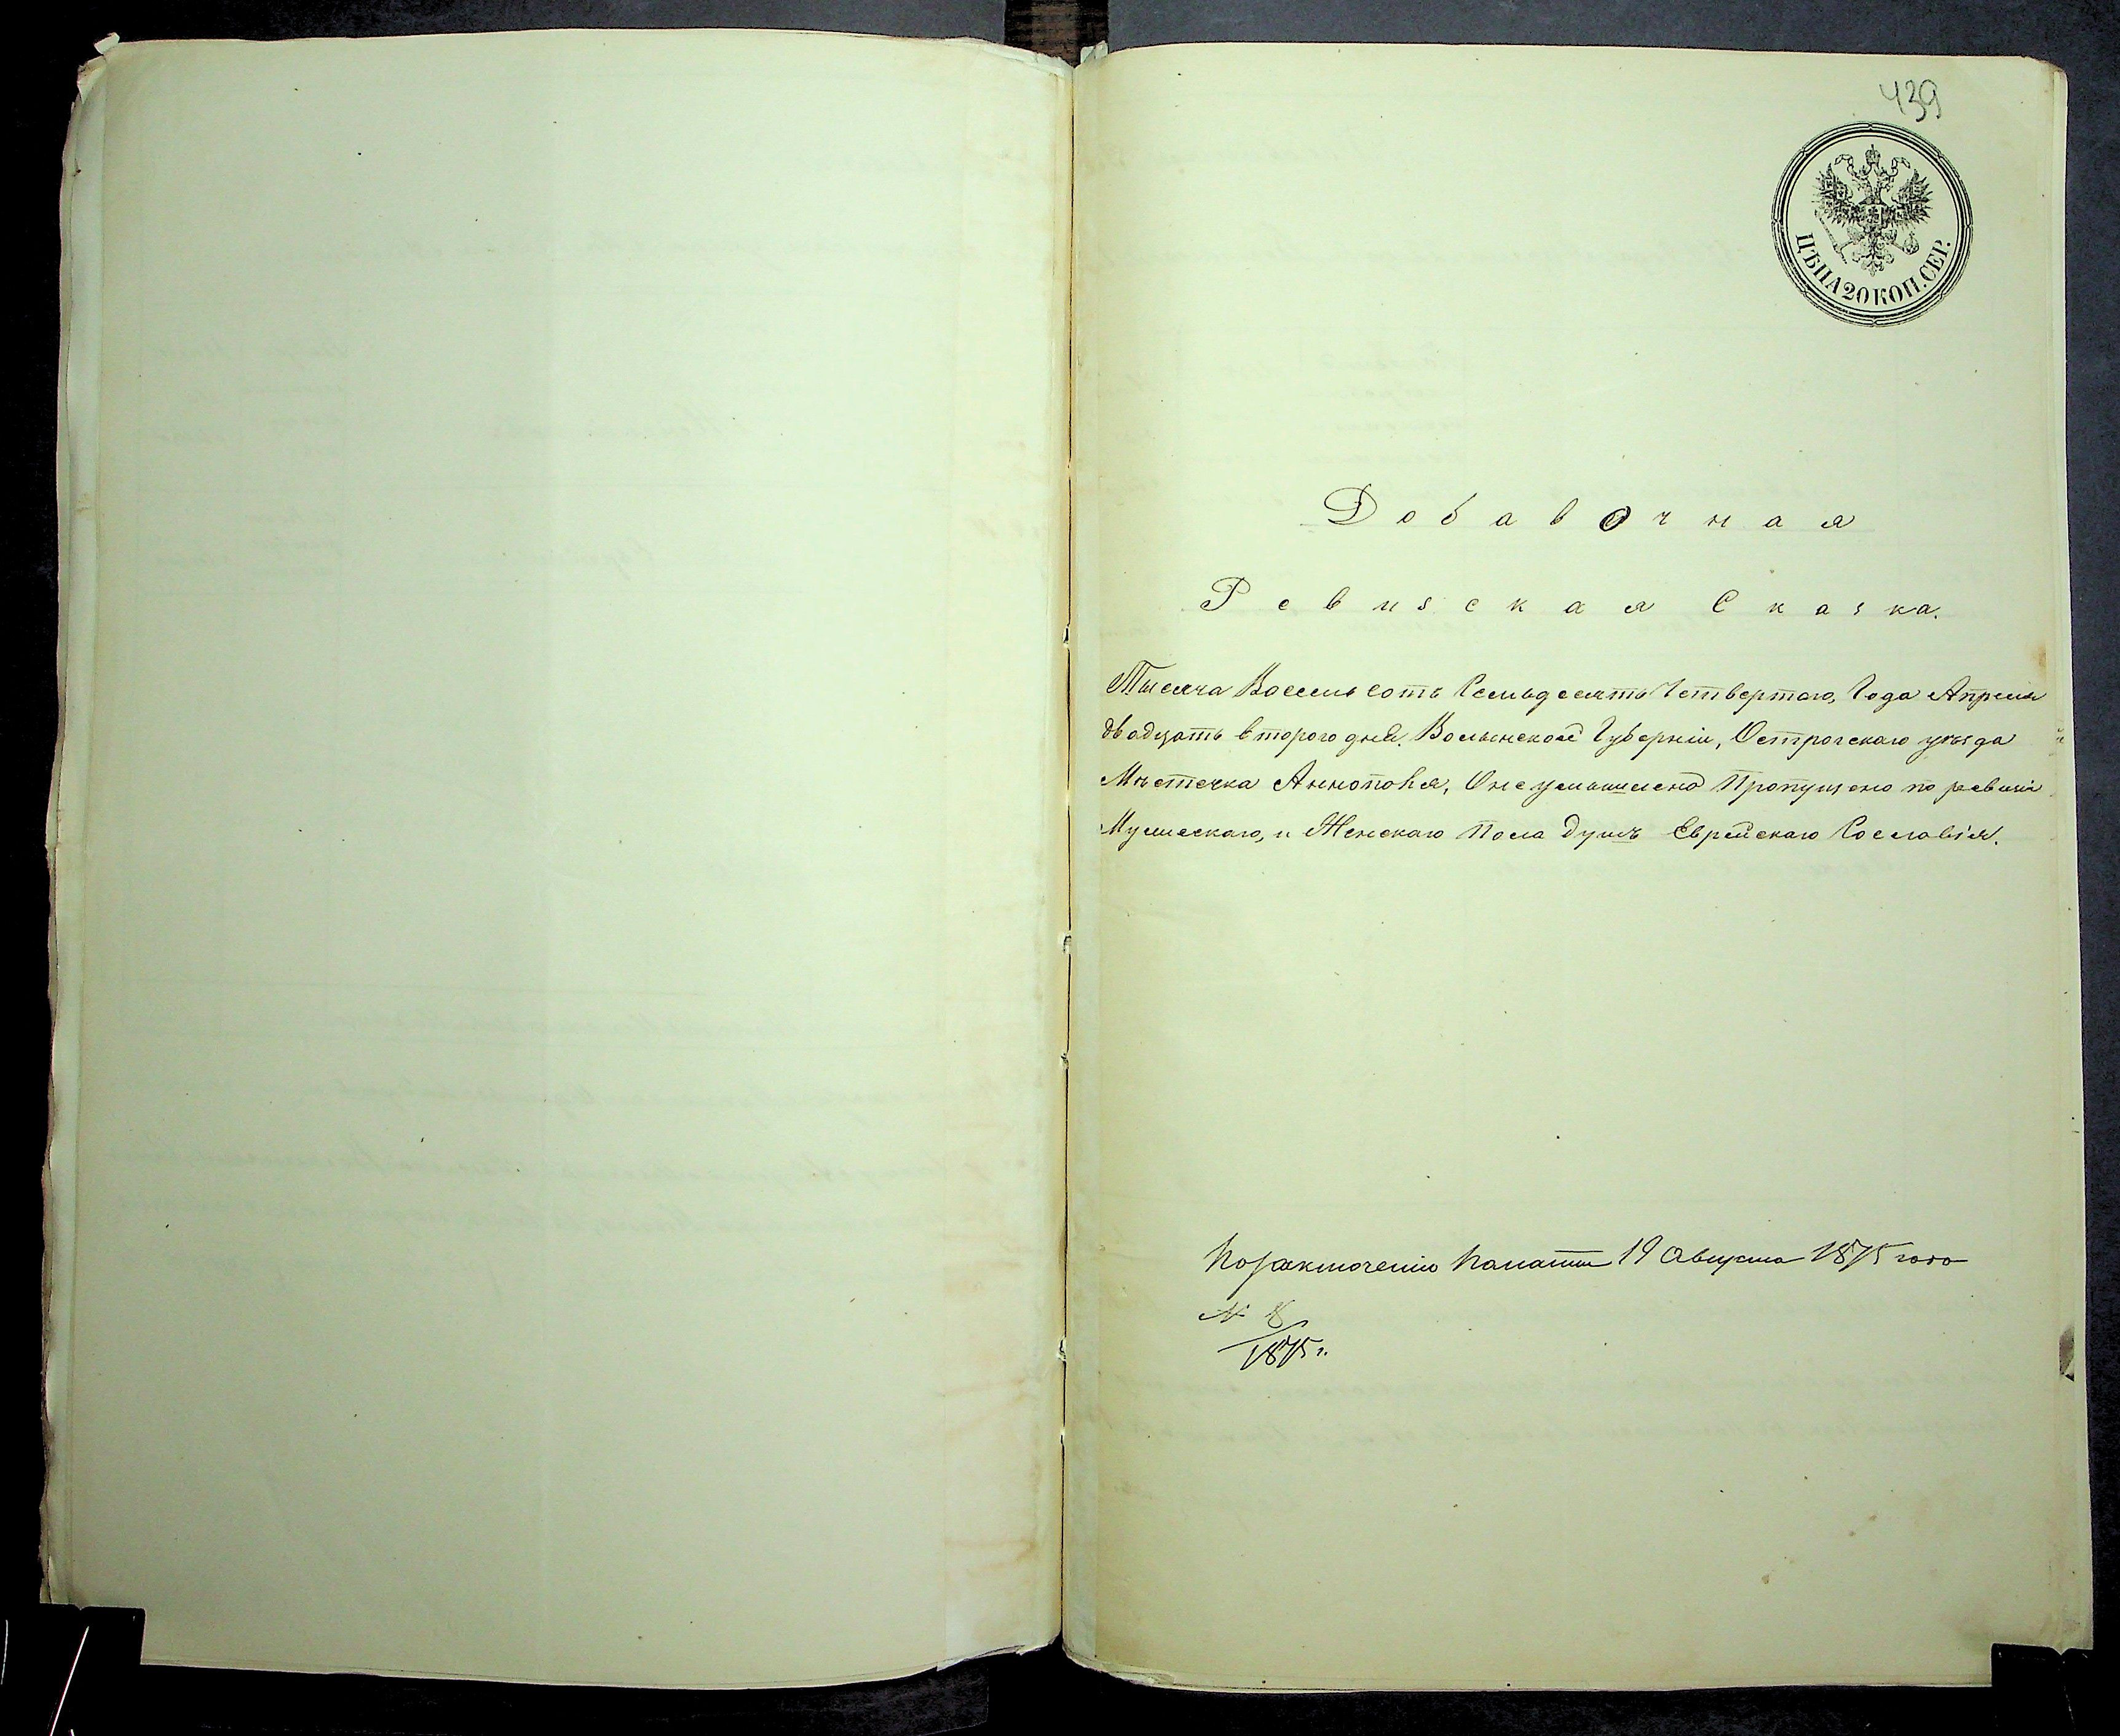 439
ЦѢНА 20 КОП. СЕР.
Добавочная
Ревизская Сказка.
Тысяча Восемь сотъ Семьдесятъ Четвертаго, Года Апреля
двадцать второго дня. Волынской Губерніи, Острогскаго уѣзда
Мѣстечка Аннополя, О неумышлено Пропущено по ревизіи
Мужескаго, и Женскаго Пола душъ Еврейскаго Сословія.
По заключенію Палаты 19 Августа 1875 года
№ 8
1875 г.